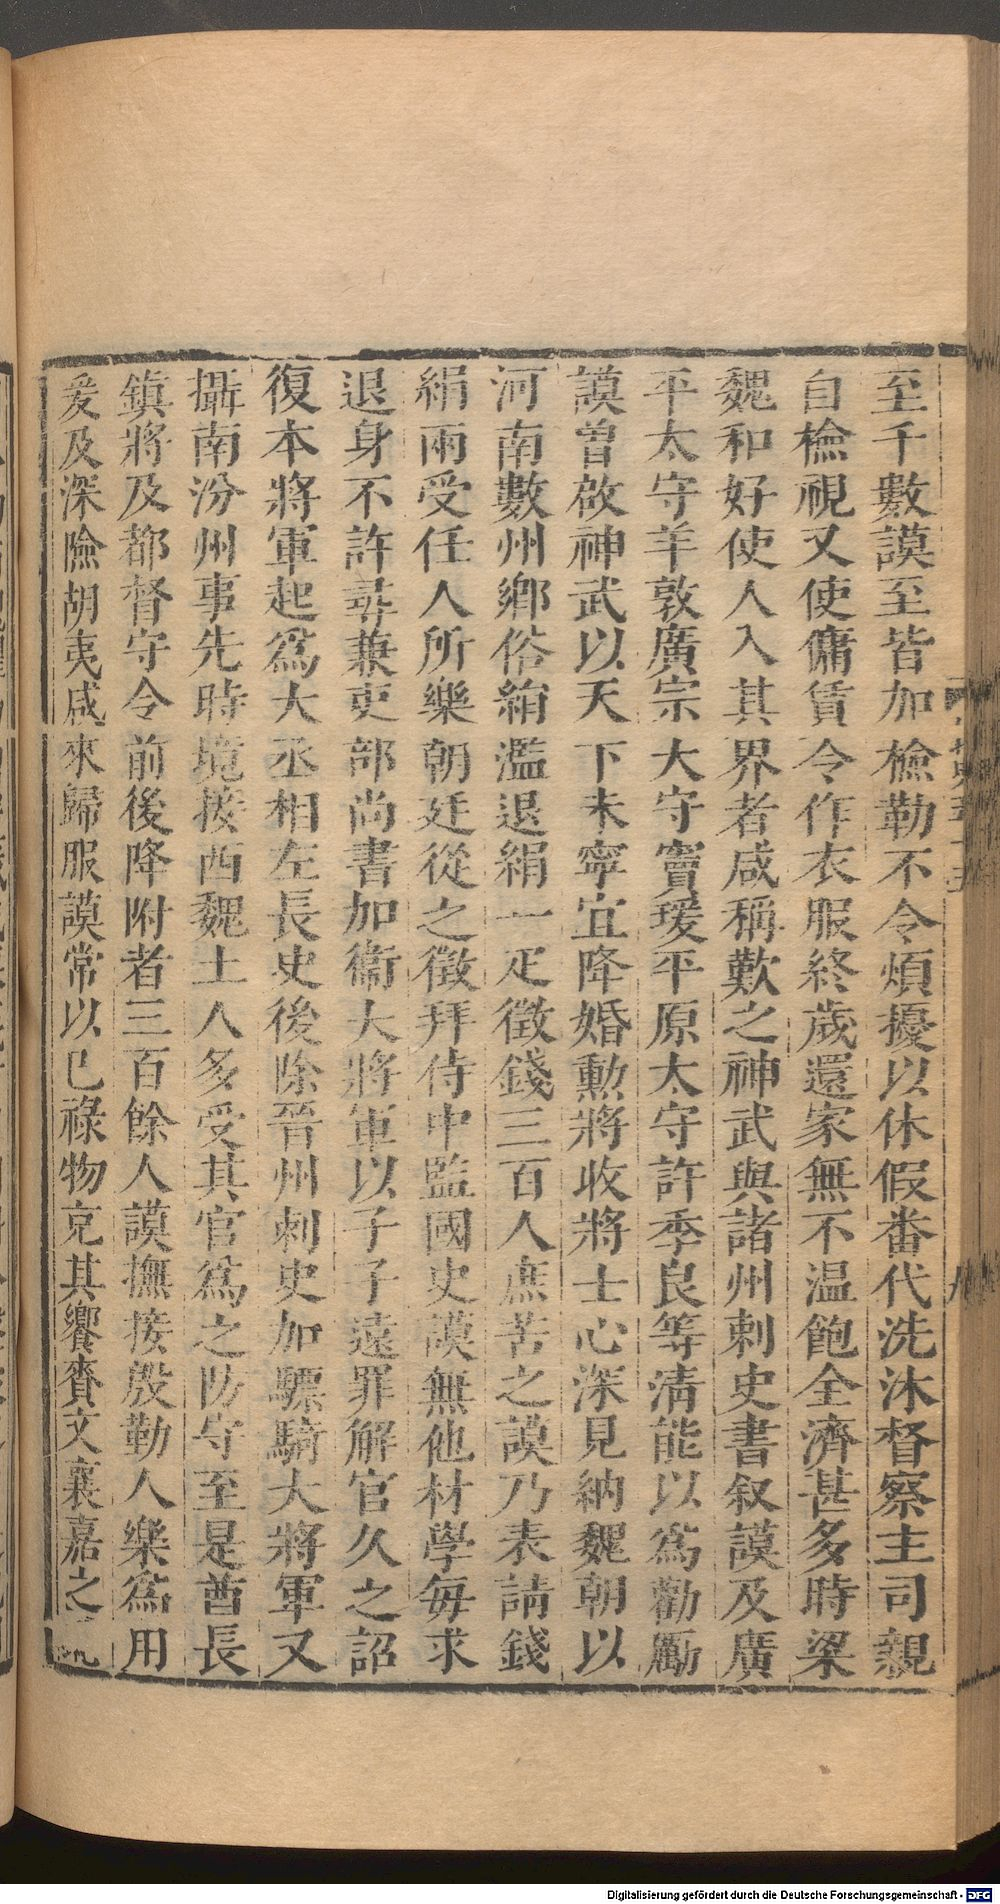 至千數謨至皆加檢勒不令煩擾以休假番代洗沐督察主司親
自檢視又使傭賃令作衣服終歲還家無不温飽全濟甚多時梁
魏和好使人入其界者咸稱歎之神武與諸州刺史書叙謨及廣
平太守羊敦廣宗大守竇瑗平原太守許季良等清能以爲勸勵
謨曽啟神武以天下未寧宜降婚勳將收將士心深見納魏朝以
河南數州鄉俗絹濫退絹一疋徵錢三百人庶苦之謨乃表請錢
絹兩受任人所樂朝廷從之徵拜侍中監國史謨無他材學每求
退身不許尋兼吏部尚書加衞大將軍以子子遠罪解官久之詔
復本將軍起爲大丞相左長史後除晉州刺史加驃騎大將軍又
攝南汾州事先時境接西魏土人多受其官爲之防守至是酋長
鎮將及都督守令前後降附者三百餘人謨撫接殷勤人樂爲用
爰及深險胡夷咸來歸服謨常以已祿物充其饗賚文襄嘉之
Digitalisierung gefördert durch die Deutsche Forschungsgemeinschaft - DFG